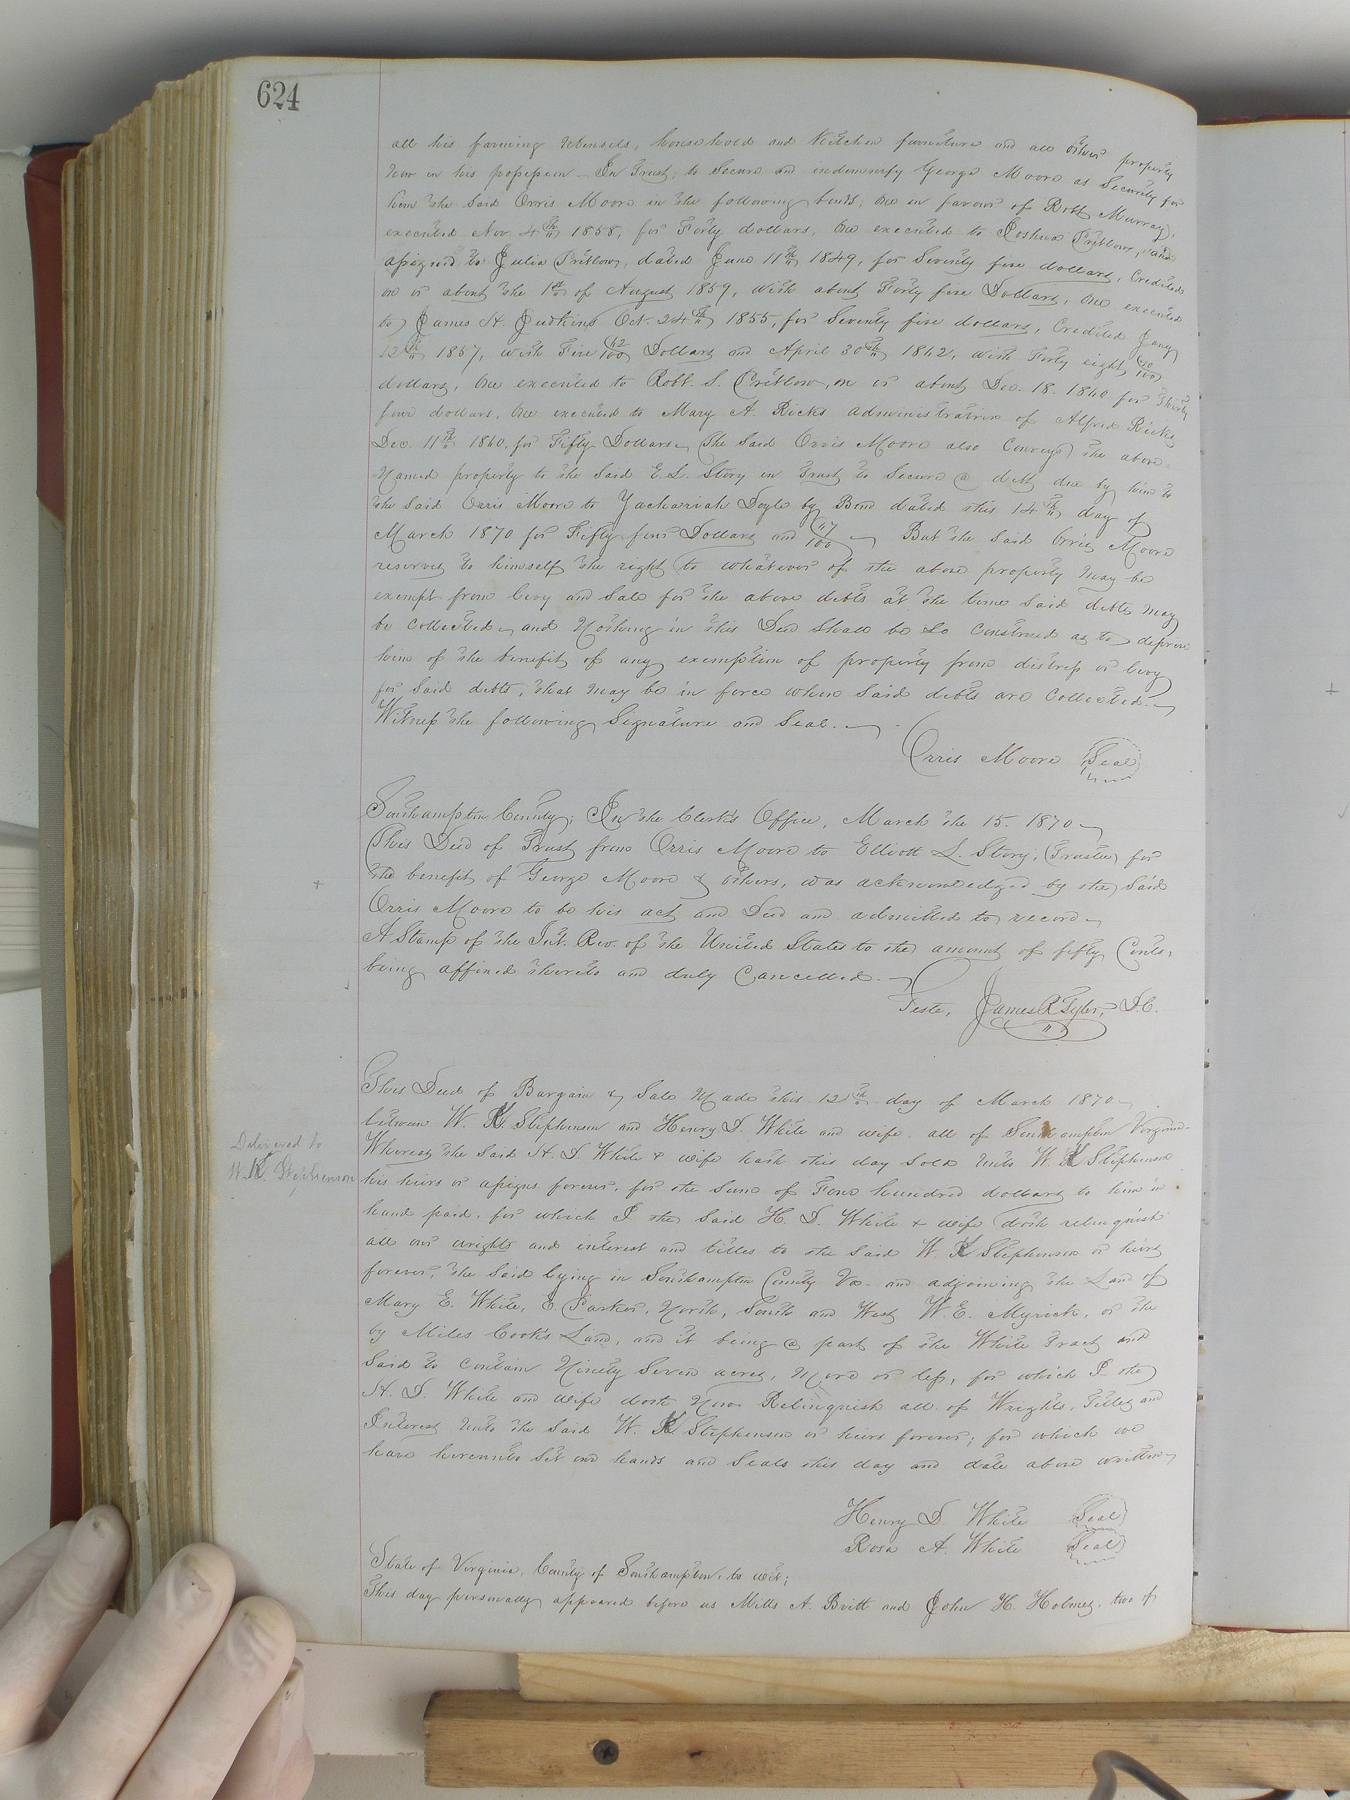 624
all his farming Utensils, household and Kitchen furniture and all other property
Now in his possession In Trust, to Secure and indemnify George Moore as Security for
him the said Orris Moore in the following bonds, One in favour of Robt Murray,
executed Nov. 4th 1858, for Forty dollars, One executed to Joshua Pretlow, and
assigned to Julia Pretlow, dated June 11th 1849, for Seventy five dollars, Credited
on or about the 1st of August 1859, with about Forty five Dollars, One executed
to James H. Judkins Oct. 24th 1855, for Seventy five dollars, Credited Jany
12th 1857, with Five 42/100 Dollars and April 30th 1862, with Forty eight
dollars, One executed to Robt. S. Pretlow, on or about Dec. 18. 1860 for Thirty
four dollars, One executed to Mary A. Ricks administratrix of Alfred Ricks
Dec. 11th 1860. for Fifty Dollars. The Said Orris Moore also Conveys the above
Named property to the Said E. L. Story in Trust to Secure a debt due by him to
the Said Orris Moore to Zachariah Doyle by Bond dated this 14th day of
March 1870 for Fifty four Dollars and 47/100 But the Said Orris Moore
reserves to himself the right to whatever of the above property may be
exempt from levy and Sale for the above debts at the time said debts may
be Collected, and Nothing in this Deed Shall be so Construed as to deprive
him of the benefit of any exemption of property from distress or levy
for Said debts, that may be in force when Said debts are Collected.
Witness the following Signature and Seal.
Orris Moore Seal
Southampton County; In the Clerk's Office, March the 15. 1870
This Deed of Trust from Orris Moore to Elliott L. Story, (Trustee) for
the benefit of George Moore & others, was acknowledged by the Said
Orris Moore to be his act and Deed and admitted to record
A Stamp of the Int. Rev. of the United States to the amount of fifty Cents,
being affixed thereto and duly Cancelled.
Teste, James R Tyler, D.C.
This Deed of Bargain & Sale Made this 12th day of March 1870
between W. K. Stephenson and Henry D. White and wife all of Southampton Virginia
Whereas the Said H. D. White & wife hath this day Sold Unto W. K Stephenson
his heirs or assigns forever, for the Sum of Four hundred dollars to him in
hand paid, for which I the Said H. D. White & wife doth relinquish
all our wrights and interest and titles to the Said W. K Stephenson or heirs
forever, the Said lying in Southampton County Va. and adjoining the Land of
Mary E. White, E. Parker, North, South and West W. E. Myrick, or the
by Miles Cook's Land, and it being a part of the White Tract and
Said to contain Ninety Seven acres, More or less, for which I the
H. D. White and wife doth Now Relinquish all of Wrights, Titles and
Interest Unto the Said W. K Stephenson or heirs forever; for which we
have hereunto Set our hands and Seals this day and date above written
Delivered to
W. K. Stephenson
Henry D White Seal
Rosa A. White Seal
State of Virginia, County of Southampton, to wit;
This day personally appeared before us Mills A. Britt and John H. Holmes, two of